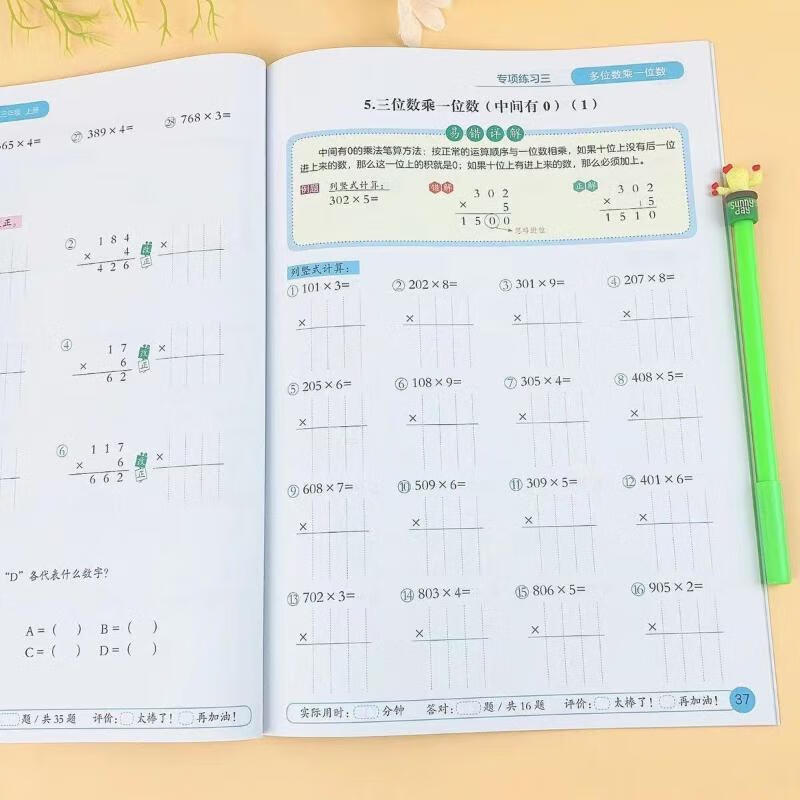 三年级 上册
65×4=
㉗ 389×4=
㉘ 768×3=
正。
②
1 8 4
× 4
4 2 6
改正
×
④
1 7
× 6
6 2
改正
×
⑥
1 1 7
× 6
6 6 2
改正
×
“D”各代表什么数字?
A=( ) B=( )
C=( ) D=( )
题/共35题 评价: 太棒了! 再加油!
专项练习三 多位数乘一位数
5.三位数乘一位数(中间有0)(1)
易错详解
中间有0的乘法笔算方法:按正常的运算顺序与一位数相乘,如果十位上没有后一位
进上来的数,那么这一位上的积就是0;如果十位上有进上来的数,那么必须加上。
例题 列竖式计算:
302×5=
错解
3 0 2
× 5
1 5 0 0
忽略进位
正解
3 0 2
× 1 5
1 5 1 0
列竖式计算:
① 101×3= ② 202×8= ③ 301×9= ④ 207×8=
× × × ×
⑤ 205×6= ⑥ 108×9= ⑦ 305×4= ⑧ 408×5=
× × × ×
⑨ 608×7= ⑩ 509×6= ⑪ 309×5= ⑫ 401×6=
× × × ×
⑬ 702×3= ⑭ 803×4= ⑮ 806×5= ⑯ 905×2=
× × × ×
实际用时: 分钟 答对: 题/共16题 评价: 太棒了! 再加油!
37
sunny
day